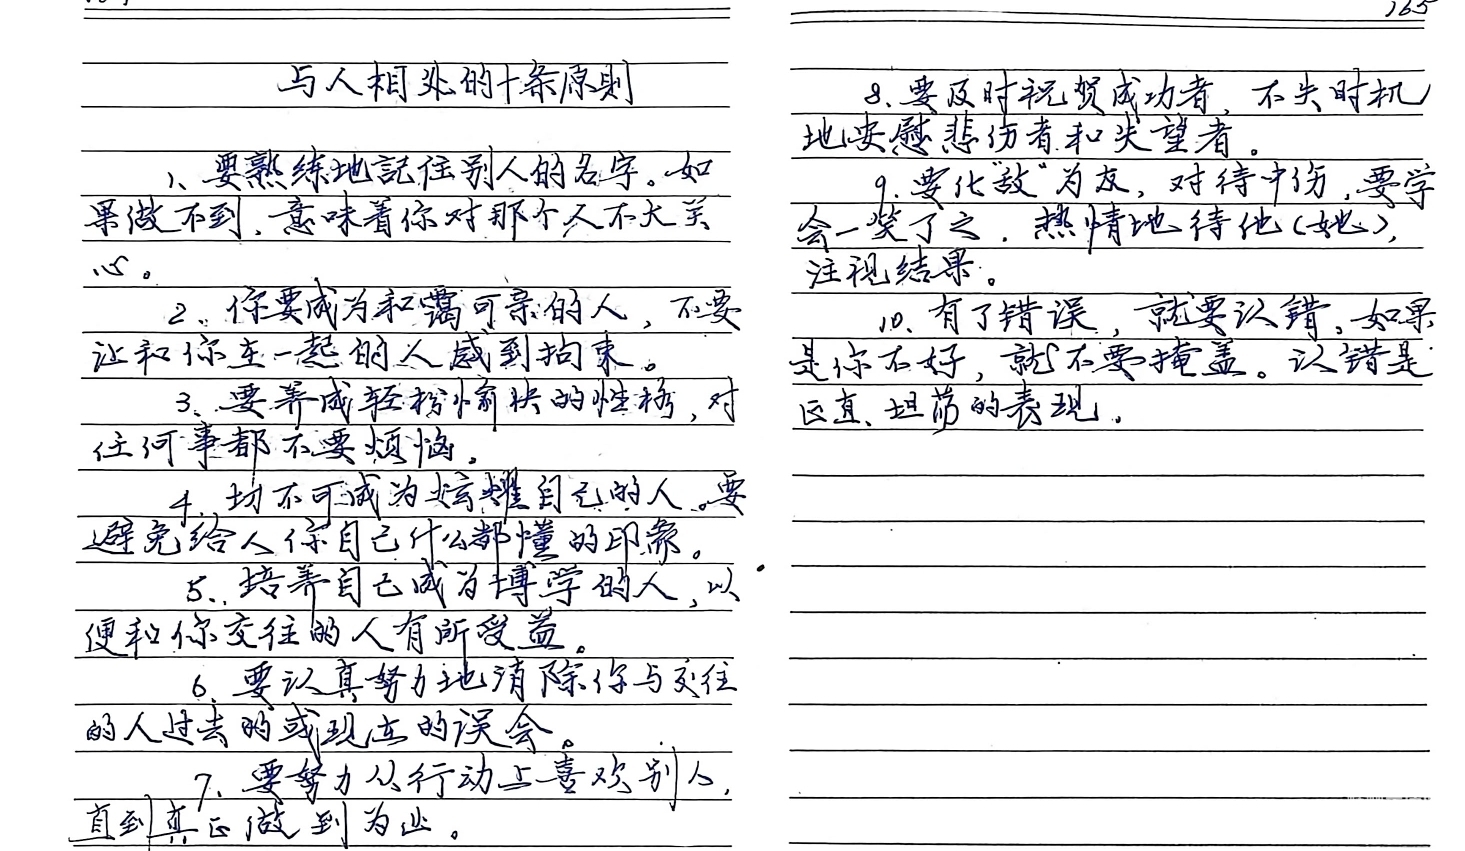 165
与人相处的十条原则
1、要熟练地記住别人的名字。如
果做不到，意味着你对那个人不大关
心。
2、你要成为和霭可亲的人，不要
让和你在一起的人感到拘束。
3、要养成轻松愉快的性格，对
任何事都不要烦恼。
4、切不可成为炫耀自己的人。要
避免给人你自己什么都懂的印象。
5、培养自己成为博学的人，以
便和你交往的人有所受益。
6、要认真努力地消除你与交往
的人过去的或现在的误会。
7、要努力从行动上喜欢别人，
直到真正做到为止。
8、要及时祝贺成功者，不失时机
地安慰悲伤者和失望者。
9、要化“敌”为友，对待中伤，要学
会一笑了之，热情地待他（她），
注视结果。
10、有了错误，就要认错。如果
是你不好，就不要掩盖。认错是
正直、坦荡的表现。